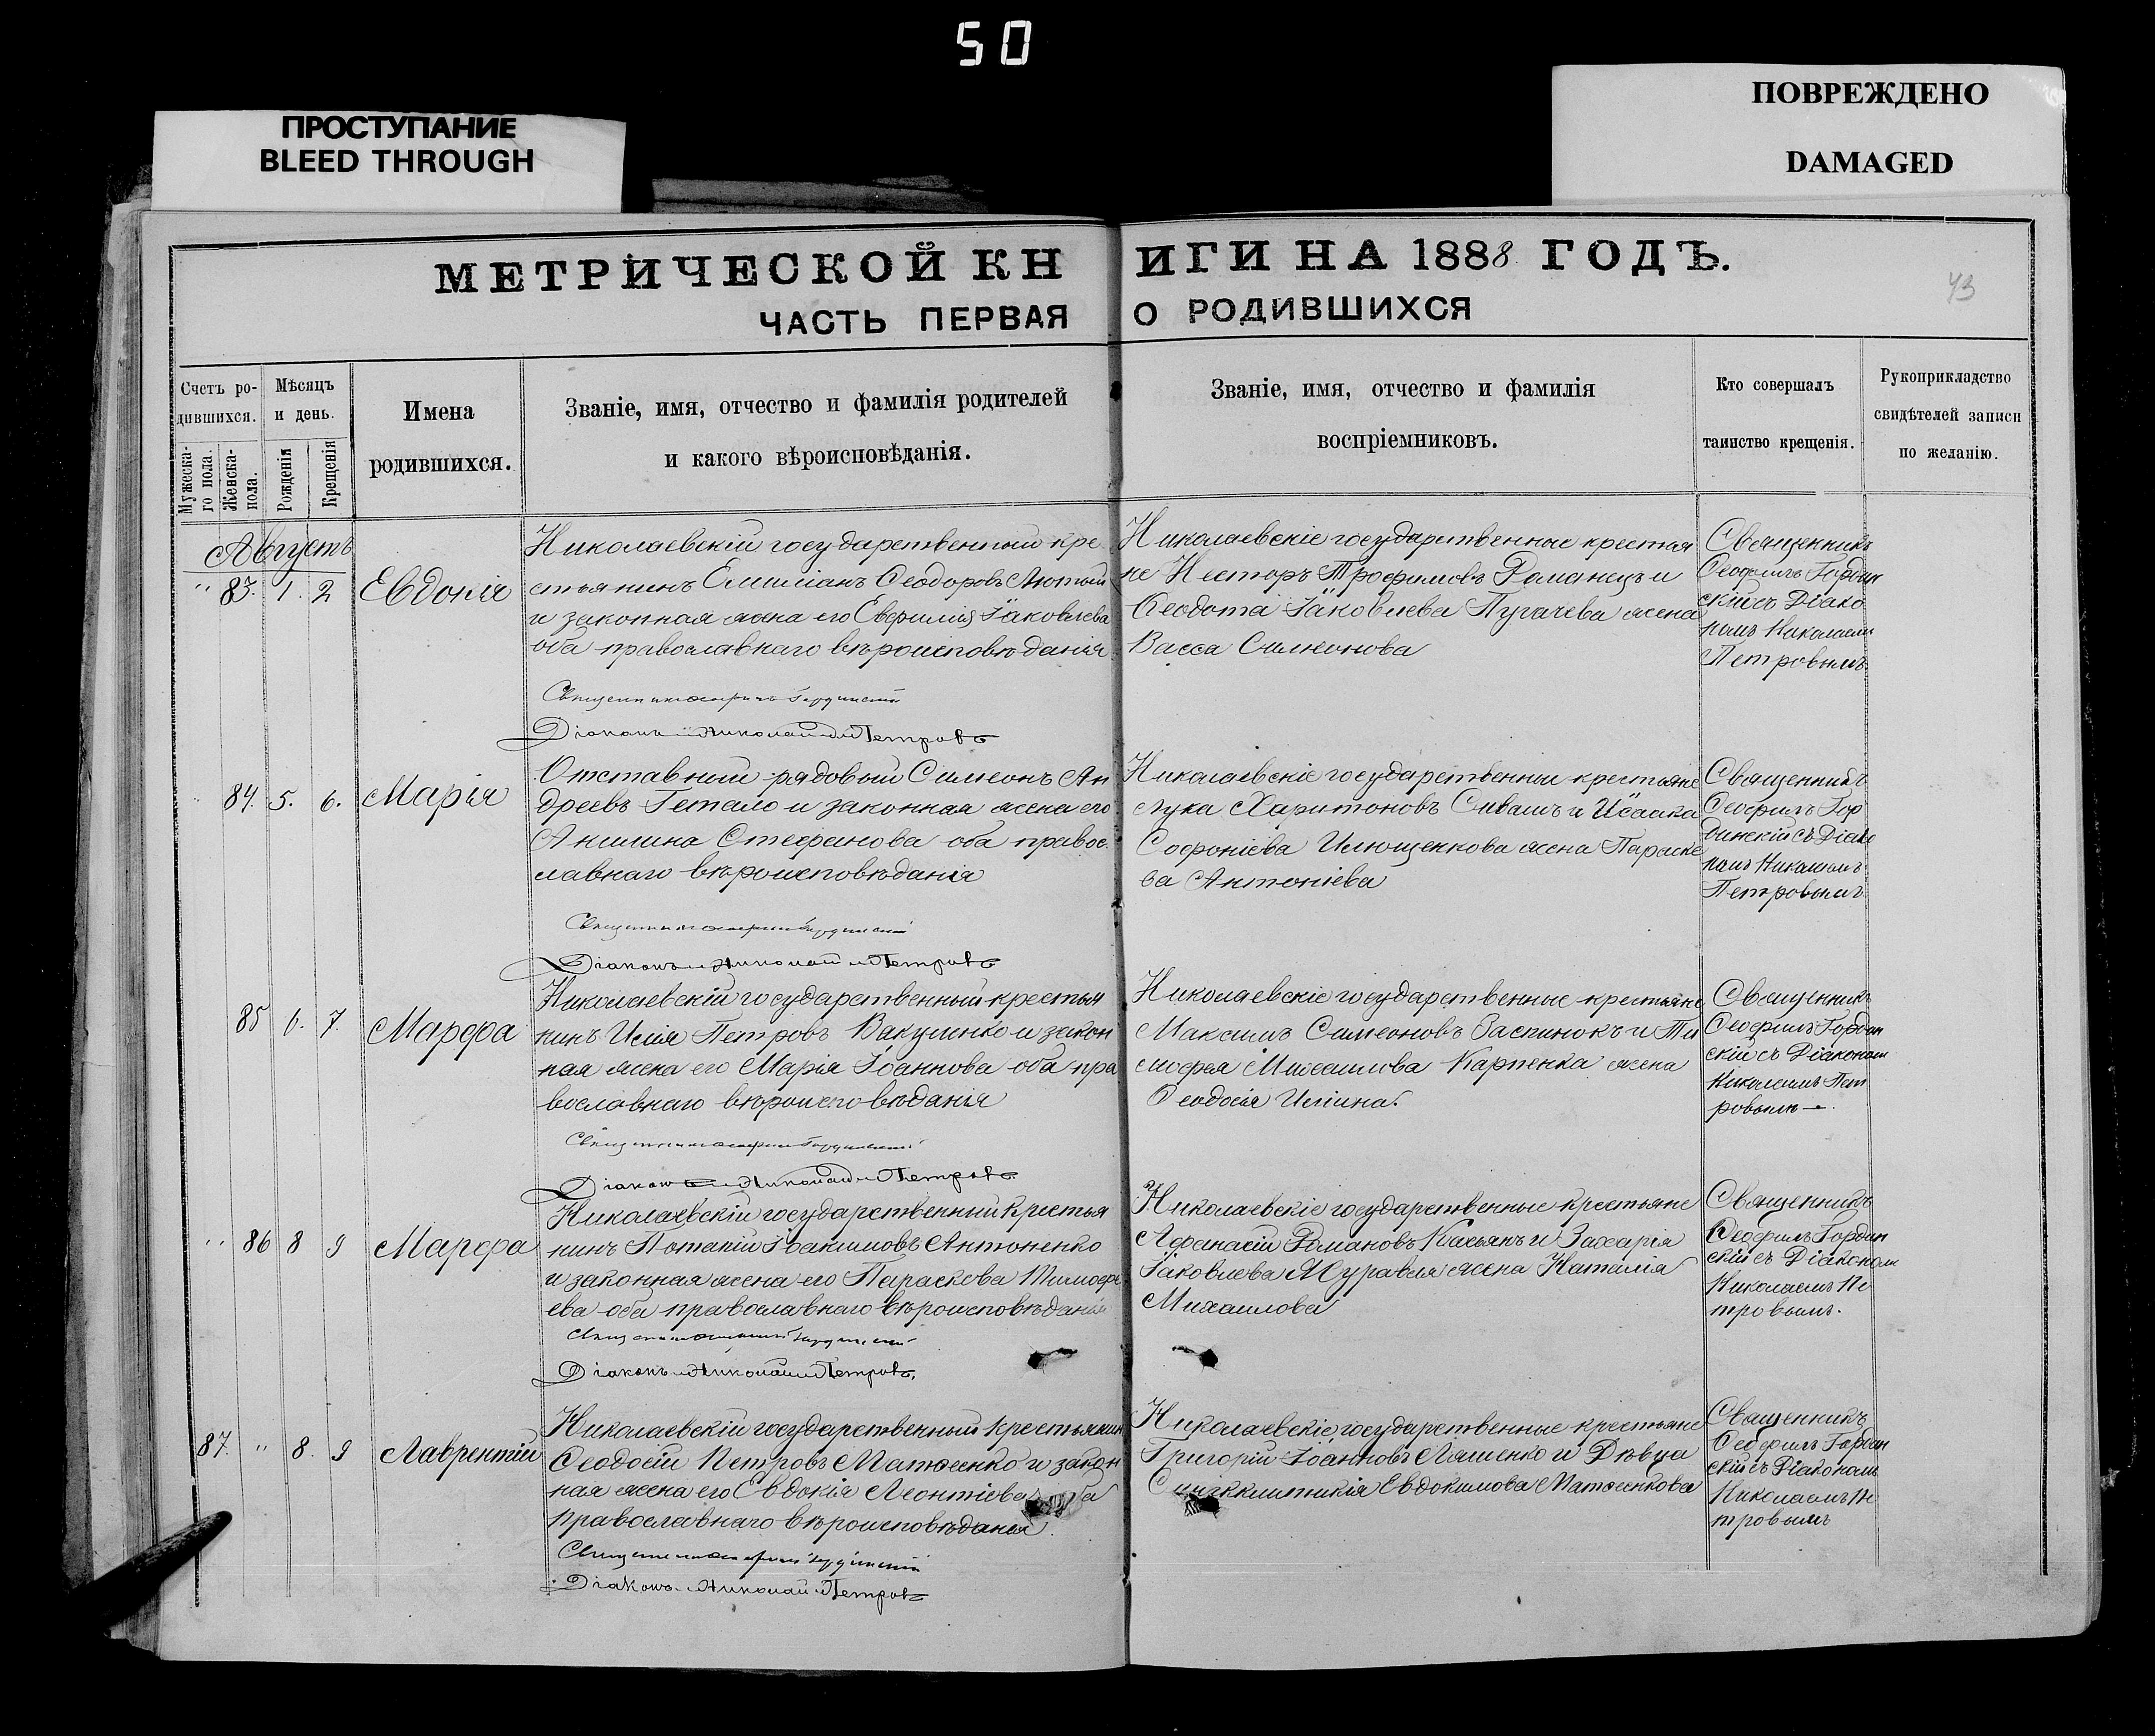 50
ПРОСТУПАНИЕ
BLEED THROUGH
ПОВРЕЖДЕНО
DAMAGED
МЕТРИЧЕСКОЙ КНИГИ НА 1888 ГОДЪ.
43
ЧАСТЬ ПЕРВАЯ О РОДИВШИХСЯ
Счетъ ро-
дившихся.
Мужеска-
го пола.
Женска-
пола.
Мѣсяцъ
и день.
Рожденія
Крещенія
Имена
родившихся.
Званіе, имя, отчество и фамилія родителей
и какого вѣроисповѣданія.
Званіе, имя, отчество и фамилія
воспріемниковъ.
Кто совершалъ
таинство крещенія.
Рукоприкладство
свидѣтелей записи
по желанію.
Августъ
" 83. 1. 2 Евдокія
Николаевскій государственный кре
стьянинъ Емиліанъ Ѳеодоровъ Лютый
и законная жена его Евфимія Іаковлева
оба православнаго вѣроисповѣданія
Священникъ Ѳеофилъ Гординскій
Діаконъ Николай Петровъ
Николаевскіе государственные крестья
не Несторъ Трофимовъ Романецъ и
Ѳеодота Іаковлева Пугачева жена
Васса Симеонова
Священникъ
Ѳеофилъ Гордин
скій съ Діако
номъ Николаемъ
Петровымъ
84. 5. 6. Марія
Отставный рядовый Симеонъ Ан
дреевъ Гетало и законная жена его
Акилина Стефанова оба правос
лавнаго вѣроисповѣданія
Священникъ Ѳеофилъ Гординскій
Діаконъ Николай Петровъ
Николаевскіе государственные крестьяне
Лука Харитоновъ Сивашъ и Исаака
Софоніева Илющенкова жена Параске
ва Антоніева
Священникъ
Ѳеофилъ Гор
динскій съ Діако
номъ Николаемъ
Петровымъ
85 6. 7. Марѳа
Николаевскій государственный крестья
нинъ Илія Петровъ Вакуленко и закон
ная жена его Марія Іоаннова оба пра
вославнаго вѣроисповѣданія
Священникъ Ѳеофилъ Гординскій
Діаконъ Николай Петровъ
Николаевскіе государственные крестьяне
Максимъ Симеоновъ Заспинокъ и Ти
мофея Михаилова Карпенка жена
Ѳеодосія Иліина.
Священникъ
Ѳеофилъ Гордин
скій съ Діакономъ
Николаемъ Пет
ровымъ
" 86 8 9 Марѳа
Николаевскій государственный крестья
нинъ Потапій Іоакимовъ Антоненко
и законная жена его Параскева Тимофе
ева оба православнаго вѣроисповѣданія
Священникъ Ѳеофилъ Гординскій
Діаконъ Николай Петровъ
Николаевскіе государственные крестьяне
Афанасій Романовъ Касьянъ и Захарія
Іаковлева Журавля жена Наталія
Михаилова
Священникъ
Ѳеофилъ Гордин
скій съ Діакономъ
Николаемъ Пе
тровымъ.
87. " 8. 9 Лаврентій
Николаевскій государственный крестьянин
Ѳеодосій Петровъ Матюенко и закон
ная жена его Евдокія Леонтіева оба
православнаго вѣроисповѣданія.
Священникъ Ѳеофилъ Гординскій
Діаконъ Николай Петровъ
Николаевскіе государственные крестьяне
Григорій Іоанновъ Ляшенко и Дѣвица
Синклитикія Евдокимова Матюенкова
Священникъ
Ѳеофилъ Гордин
скій съ Діакономъ
Николаемъ Пе
тровымъ